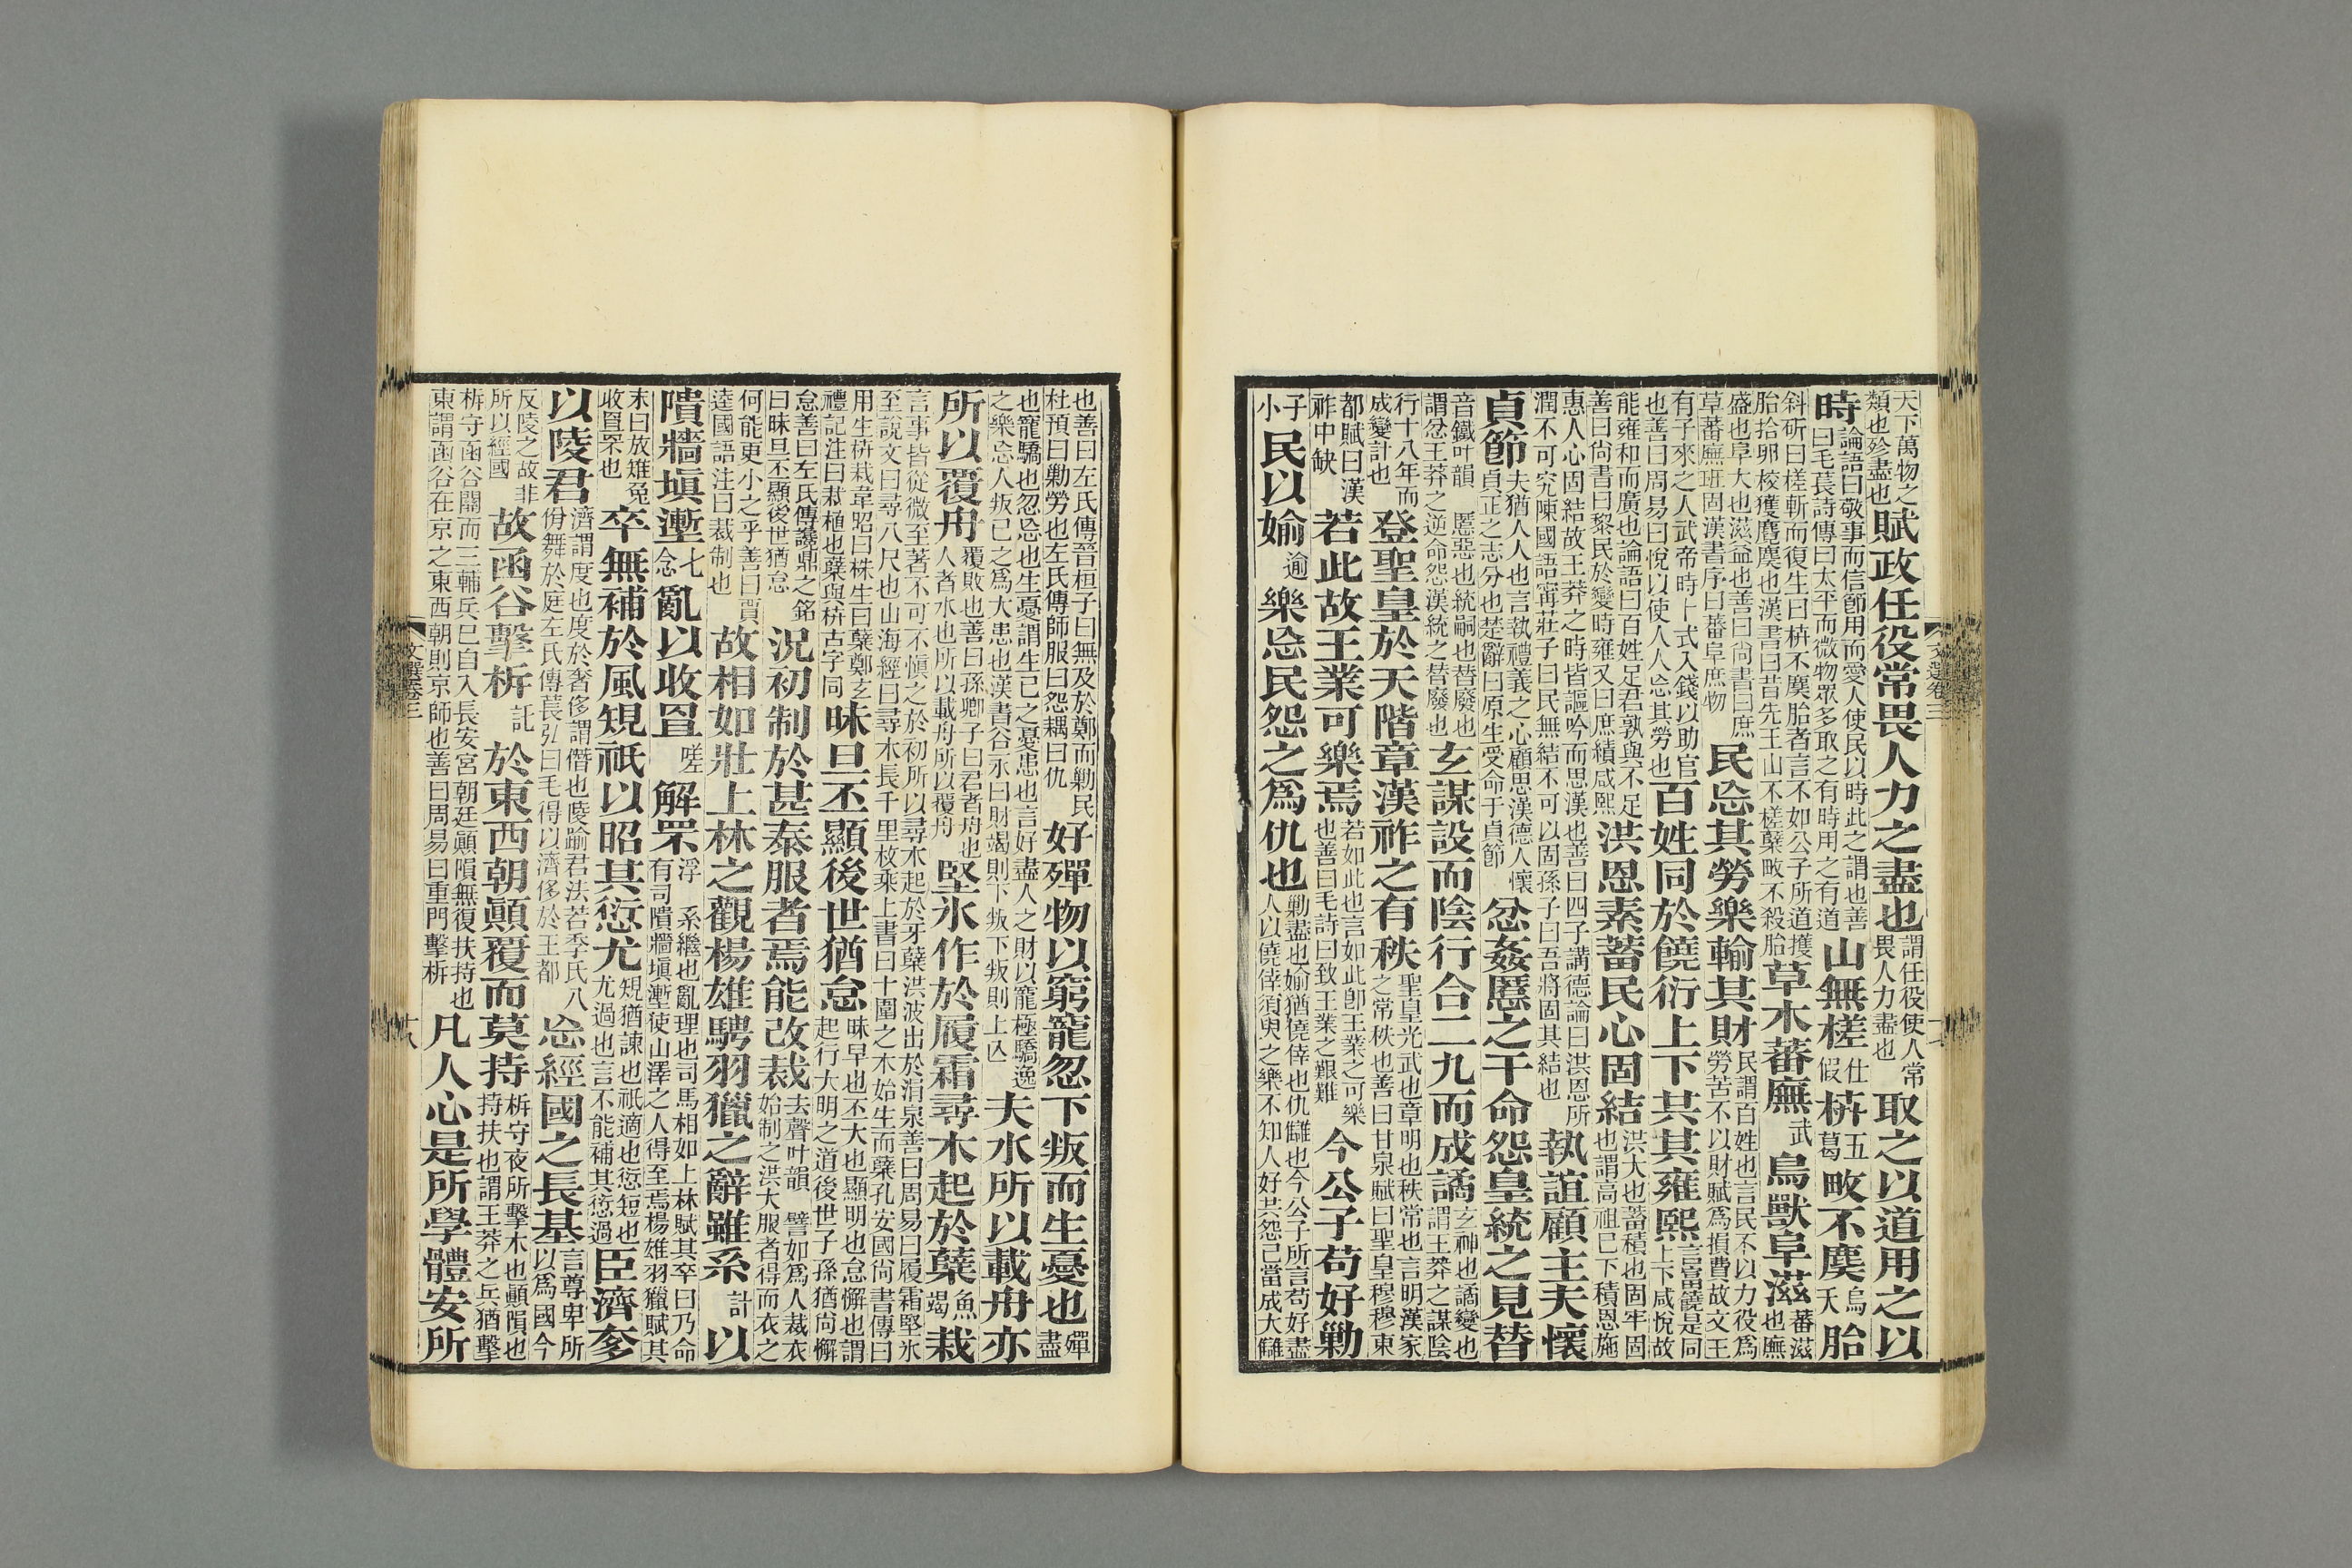 天下萬物之類也殄盡也賦政任役常畏人力之盡也謂任役使人常畏人力盡也取之以道用之以
時論語曰敬事而信節用而愛人使民以時此之謂也善曰毛萇詩傳曰太平而微物眾多取之有時用之有道山無槎仕假枿五葛畋不麌烏夭胎
斜斫曰槎斬而復生曰枿不麌胎者言不如公子所道擭胎拾卵校獲麑麌也漢書曰昔先王山不槎蘖畋不殺胎草木蕃廡武鳥獸阜滋蕃滋也廡
盛也阜大也滋益也善曰尙書曰庶草蕃廡班固漢書序曰蕃阜庶物民忘其勞樂輸其財民謂百姓也言民不以力役爲勞苦不以財賦爲損費故文王
有子來之人武帝時卜式入錢以助官也善曰周易曰悅以使人人忘其勞也百姓同於饒衍上下共其雍熙言富饒是同上下咸悅故
能雍和而廣也論語曰百姓足君孰與不足善曰尙書曰黎民於變時雍又曰庶績咸熙洪恩素蓄民心固結洪大也蓄積也固牢固也謂高祖已下積恩施
惠人心固結故王莽之時皆謳吟而思漢也善曰四子講德論曰洪恩所潤不可究陳國語甯莊子曰民無結不可以固孫子曰吾將固其結也執誼顧主夫懷
貞節夫猶人人也言執禮義之心顧思漢德人懷貞正之志分也楚辭曰原生受命于貞節忿姦慝之干命怨皇統之見替
音鐵叶韻 慝惡也統嗣也替廢也謂忿王莽之逆命怨漢統之替廢也玄謀設而陰行合二九而成譎玄神也譎變也謂王莽之謀陰
行十八年而成變計也登聖皇於天階章漢祚之有秩聖皇光武也章明也秩常也言明漢家之常秩也善曰甘泉賦曰聖皇穆穆東
都賦曰漢祚中缺若此故王業可樂焉若如此也言如此卽王業之可樂也善曰毛詩曰致王業之艱難今公子苟好勦
子小民以媮逾樂忘民怨之爲仇也勦盡也媮猶僥倖也仇讎也今公子所言苟好盡人以僥倖須臾之樂不知人好共怨己當成大讎
文選卷三
十七
也善曰左氏傳晉桓子曰無及於鄭而勦民杜預曰勦勞也左氏傳師服曰怨耦曰仇好殫物以窮寵忽下叛而生憂也殫盡
也寵驕也忽忘也生憂謂生己之憂患也言好盡人之財以寵極驕逸之樂忘人叛己之爲大患也漢書谷永曰財竭則下叛下叛則上亾夫水所以載舟亦
所以覆舟覆敗也善曰孫卿子曰君者舟也人者水也所以載舟所以覆舟堅氷作於履霜尋木起於蘖魚竭栽
言事皆從微至著不可不愼之於初所以尋木起於牙蘖洪波出於涓泉善曰周易曰履霜堅氷至說文曰尋八尺也山海經曰尋木長千里枚乘上書曰十圍之木始生而蘖孔安國尙書傳曰
用生枿栽韋昭曰株生曰蘖鄭玄禮記注曰栽植也蘖與枿古字同昧旦丕顯後世猶怠昧早也丕大也顯明也怠懈也謂起行大明之道後世子孫猶尙懈
怠善曰左氏傳讒鼎之銘曰昧旦丕顯後世猶怠況初制於甚泰服者焉能改裁去聲叶韻 譬如爲人裁衣始制之洪大服者得而衣之
何能更小之乎善曰賈逵國語注曰裁制也故相如壯上林之觀楊雄騁羽獵之辭雖系計以
隤牆塡壍七念亂以收罝嗟解罘浮 系繼也亂理也司馬相如上林賦其卒曰乃命有司隤牆塡壍使山澤之人得至焉楊雄羽獵賦其
末曰放雉兔收罝罘也卒無補於風規祇以昭其愆尤規猶諫也祇適也愆短也尤過也言不能補其愆過臣濟奓
以陵君濟謂度也度於奢侈謂僭也陵踰君法若季氏八佾舞於庭左氏傳萇弘曰毛得以濟侈於王都忘經國之長基言尊卑所以爲國今
反陵之故非所以經國故函谷擊柝託於東西朝顚覆而莫持柝守夜所擊木也顚隕也持扶也謂王莽之兵猶擊
柝守函谷關而三輔兵已自入長安宮朝廷顚隕無復扶持也東謂函谷在京之東西朝則京師也善曰周易曰重門擊柝凡人心是所學體安所
文選卷三
十八